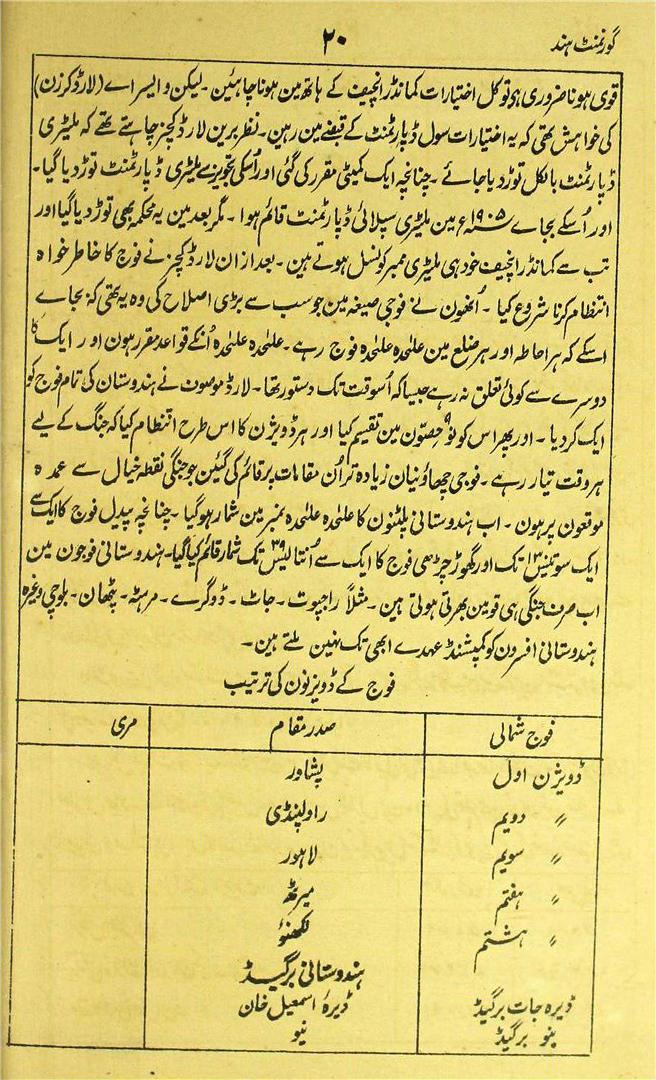 گورنمنٹ ہند
۲۰
قوی ہونا ضروری ہی تو کل اختیارات کمانڈرانچیف کے ہاتھ مین ہونا چاہئین ۔ لیکن وایسراے (لارڈ کرزن)
کی خواہش تھی کہ یہ اختیارات سول ڈپارٹمنٹ کے قبضے مین رہین ۔ نظر برین لارڈ کچنر چاہتے تھے کہ ملیٹری
ڈپارٹمنٹ بالکل توڑ دیا جائے ۔ چنانچہ ایک کمیٹی مقرر کی گئی اور اُسکی تجویز سے ملیٹری ڈپارٹمنٹ توڑ دیا گیا ۔
اور اُسکے بجاے ۱۹۰۵ء مین ملیٹری سپلائی ڈپارٹمنٹ قائم ہوا ۔ مگر بعد مین یہ محکمہ بھی توڑ دیا گیا اور
تب سے کمانڈرانچیف خود ہی ملیٹری ممبر کونسل ہوتے ہین ۔ بعد ازان لارڈ کچنر نے فوج کا خاطر خواہ
انتظام کرنا شروع کیا ۔ اُنھون نے فوجی صیغہ مین جو سب سے بڑی اصلاح کی وہ یہ تھی کہ بجاے
اسکے کہ ہر احاطہ اور ہر ضلع مین علٰحدہ علٰحدہ فوج رہے ۔ علٰحدہ علٰحدہ اُنکے قواعد مقرر ہون اور ایک کا
دوسرے سے کوئی تعلق نہ رہے جیسا کہ اُسوقت تک دستور تھا ۔ لارڈ موصوف نے ہندوستان کی تمام فوج کو
ایک کر دیا ۔ اور پھر اس کو نو ۹ حصّون مین تقسیم کیا اور ہر ڈویژن کا اس طرح انتظام کیا کہ جنگ کے لیے
ہر وقت تیار رہے ۔ فوجی چھاؤنیان زیادہ تر اُن مقامات پر قائم کی گئین جو جنگی نقطہ خیال سے عمدہ
موقعون پر ہون ۔ اب ہندوستانی پلٹنون کا علٰحدہ علٰحدہ نمبر مین شمار ہو گیا ۔ چنانچہ پیدل فوج کا ایک سے
ایک سو تیس ۱۳۰ تک اور گھوڑ چڑھی فوج کا ایک سے اُنتالیس ۳۹ تک شمار قائم کیا گیا ۔ ہندوستانی فوجون مین
اب صرف جنگی ہی قومین بھرتی ہوتی ہین ۔ مثلاً راجپوت ۔ جاٹ ۔ ڈوگرے ۔ مرہٹہ ۔ پٹھان ۔ بلوچی وغیرہ
ہندوستانی افسرون کو کمیشنڈ عہدے ابھی تک نہین ملتے ہین ۔
فوج کے ڈویزنون کی ترتیب
فوج شمالی صدر مقام مری
ڈویژن اول پشاور
〃 دویم راولپنڈی
〃 سویم لاہور
〃 ہفتم میرٹھ
〃 ہشتم لکھنؤ
ہندوستانی برگیڈ
ڈیرہ جات برگیڈ ڈیرۂ اسمعیل خان
بنو برگیڈ نیو